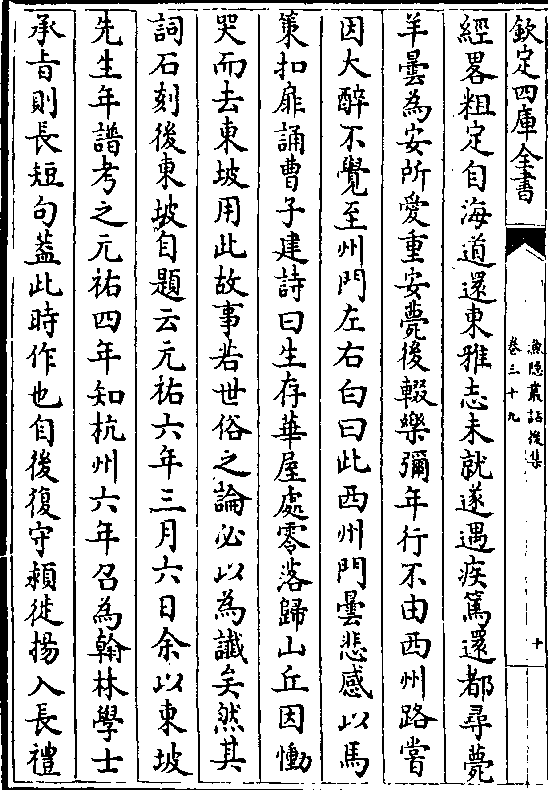 欽定四庫全書
漁隱叢話後集
卷三十九
十
經畧粗定自海道還東雅志未就遂遇疾篤還都尋薨
羊曇為安所愛重安薨後輟樂彌年行不由西州路嘗
因大醉不覺至州門左右白曰此西州門曇悲感以馬
策扣扉誦曹子建詩曰生存華屋處零落歸山丘因慟
哭而去東坡用此故事若世俗之論必以為讖矣然其
詞石刻後東坡自題云元祐六年三月六日余以東坡
先生年譜考之元祐四年知杭州六年召為翰林學士
承旨則長短句葢此時作也自後復守潁徙揚入長禮